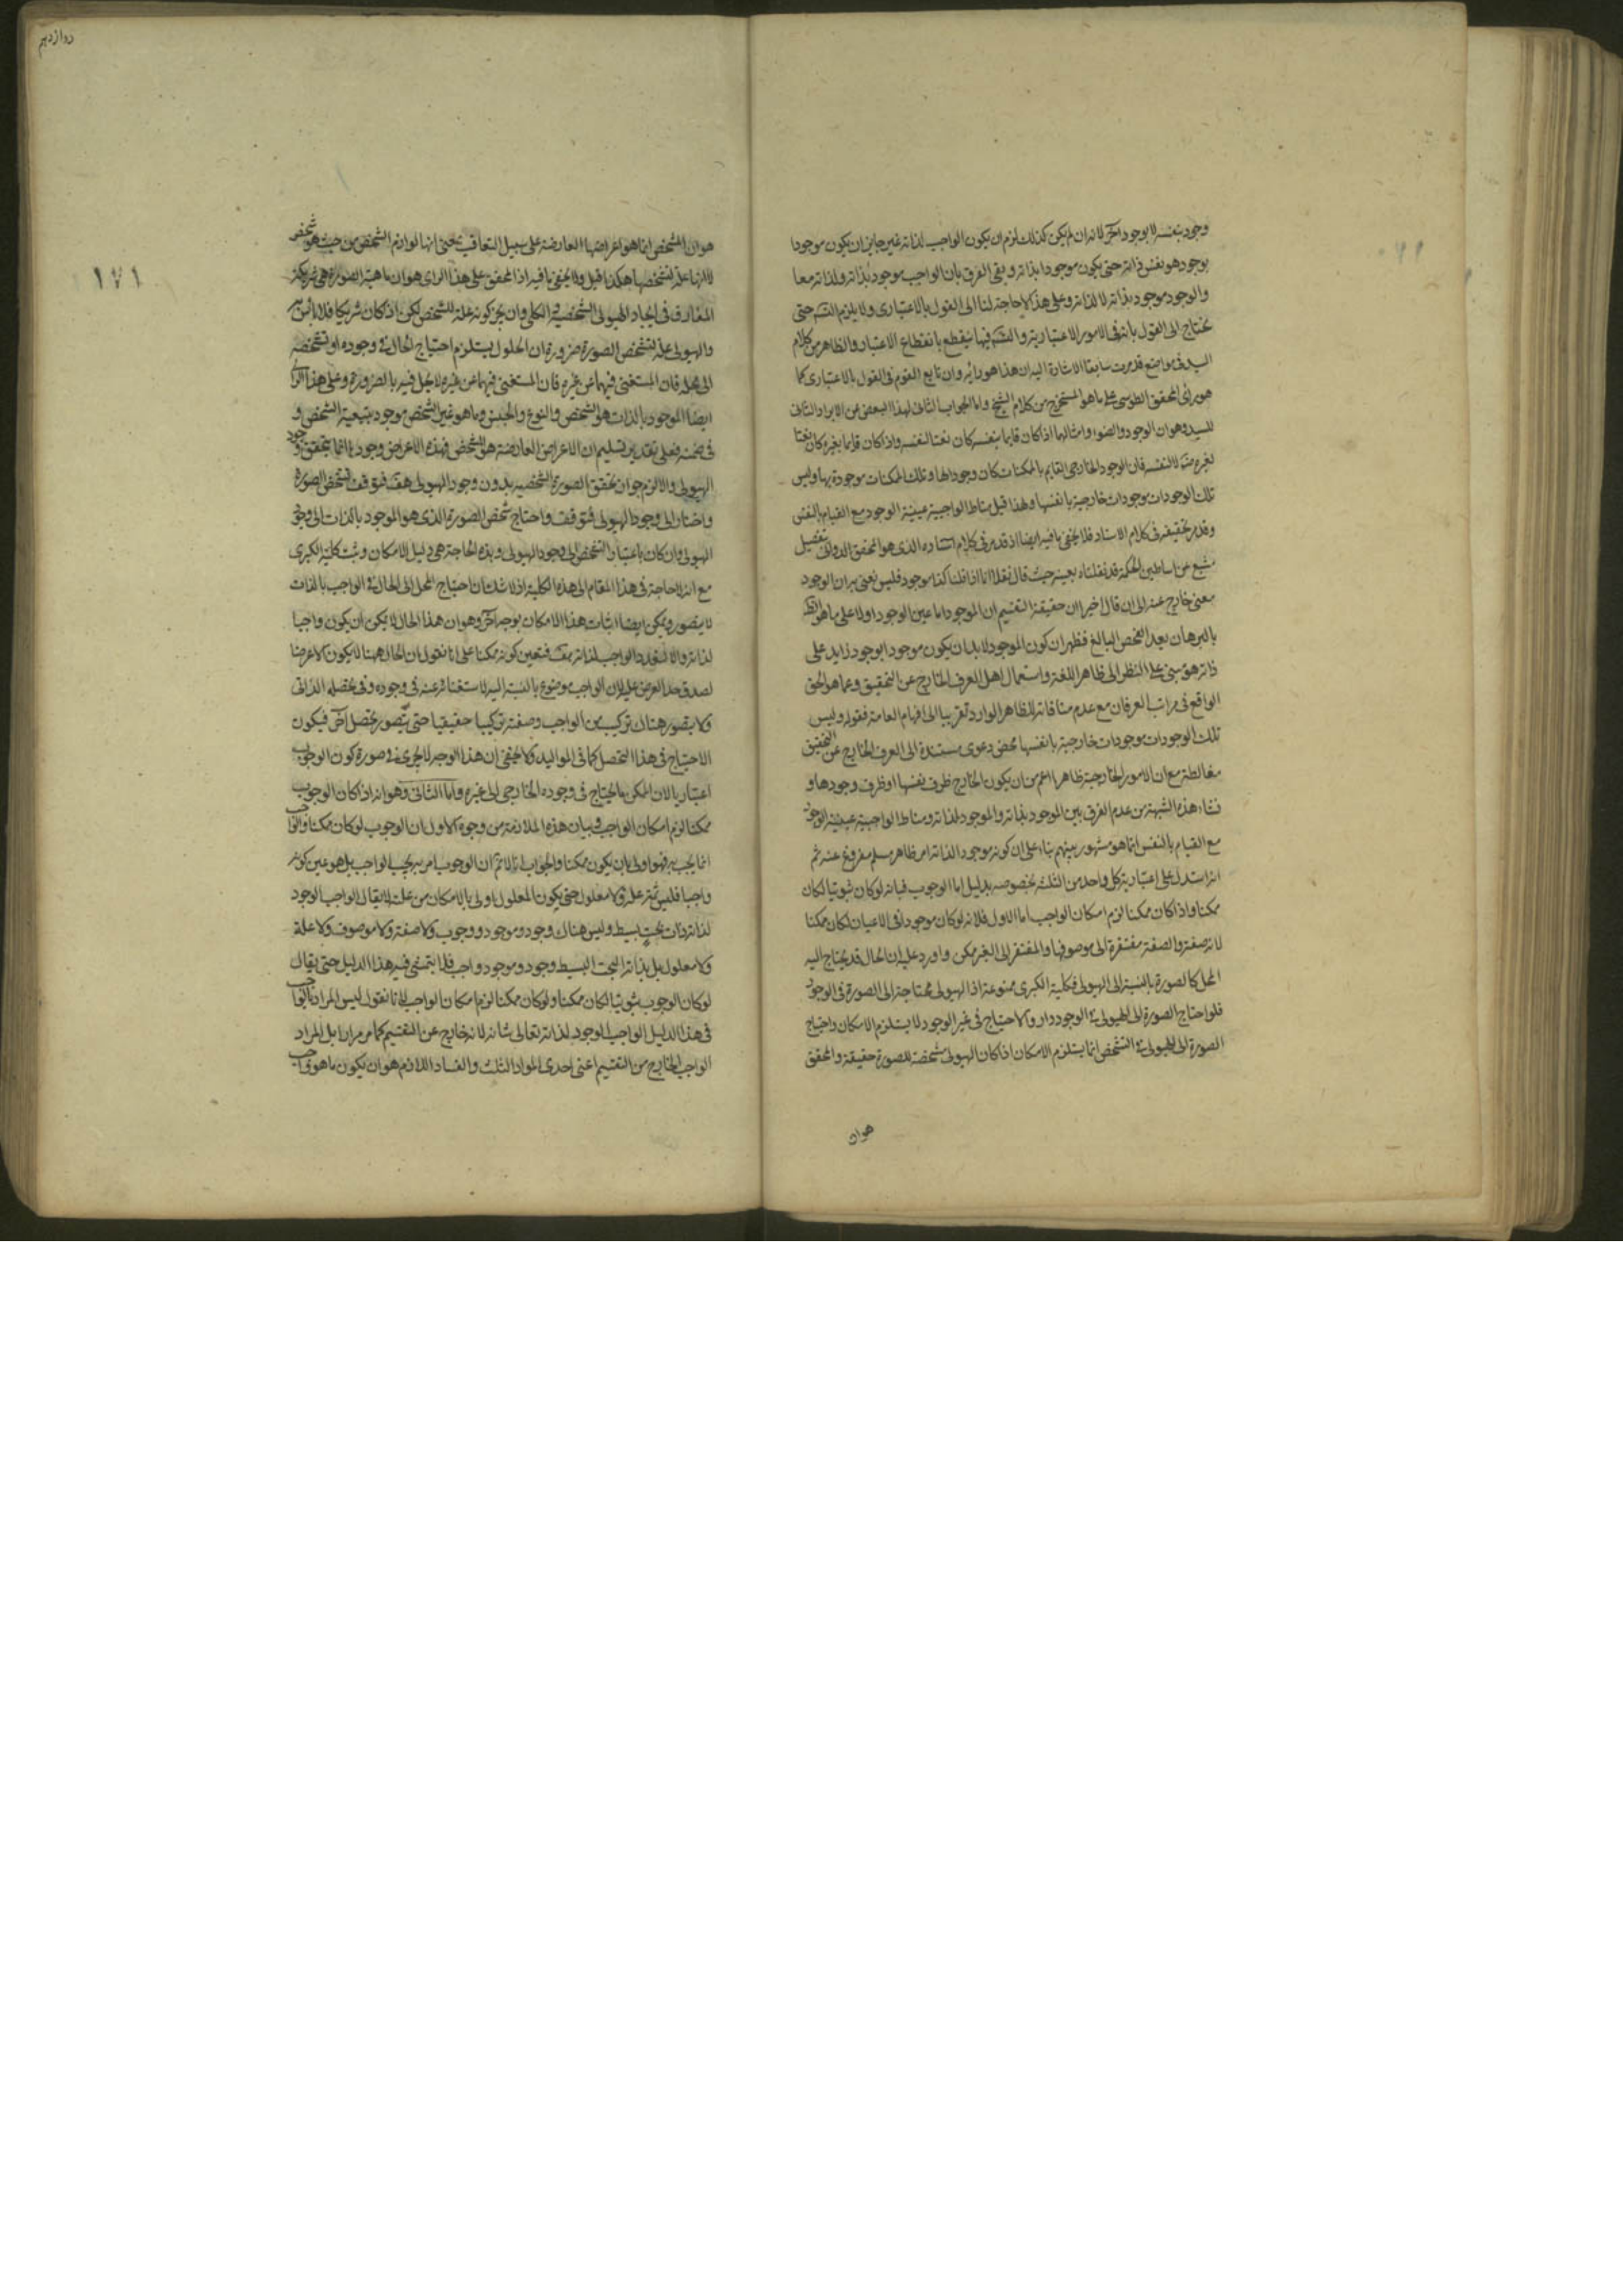 وجود بنفسه لا بوجود آخر لانه ان لم يكن كذلك لزم ان يكون الواجب لذاته غير جايز ان يكون موجودا
بوجود هو نفس ذاته حتى يكون موجودا بذاته وبقى الفرق بان الواجب موجود بذاته ولذاته معا
والوجود موجود بذاته لا لذاته وعلى هذا لا حاجة لنا الى القول بالاعتبارى ولا يلزم التسه حتى
نحتاج الى القول بانه فى الامور الاعتبارية والتسه فيها ينقطع بانقطاع الاعتبار والظاهر من كلام
السيد فى مواضع قد مرت سابقا الاشارة اليه ان هذا هو رايه وان تابع القوم فى القول بالاعتبارى كما
هو راى المحقق الطوسى على ما هو المستخرج من كلام الشيخ واما الجواب الثانى لهذا البعض عن الايراد الثانى
للسيد وهو ان الوجود والضوء وامثالهما اذا كان قايما بنفسه كان نعتا لنفسه واذا كان قايما بغيره كان نعتا
لغيره لا لنفسه فان الوجود الخارجى القايم بالممكنات كان وجودا لها وتلك الممكنات موجودة بها وليس
تلك الوجودات موجودات خارجية بانفسها ولهذا قيل مناط الواجبية عينية الوجود مع القيام بالنفس
وقد مر تحقيقه فى كلام الاستاد فلا يخفى ما فيه ايضا اذ قد مر فى كلام استاده الذى هو المحقق الدوانى بتفصيل
مشبع عن اساطين الحكمة قد نقلناه بعينه حيث قال نقلا انا اذا قلنا كذا موجود فليس نعنى به ان الوجود
معنى خارج عنه الى ان قال اخيرا ان حقيقة التقسيم ان الموجود اما عين الوجود او لا على ما هو
بالبرهان بعد الفحص البالغ فظهر ان كون الموجود لا بد ان يكون موجودا بوجود زايد على
ذاته هو مبنى على النظر الى ظاهر اللغة واستعمال اهل العرف الخارج عن التحقيق وعما هو الحق
الواقع فى مراتب العرفان مع عدم منافاته للظاهر الوارد تقريبا الى افهام العامة فقوله وليس
تلك الوجودات موجودات خارجية بانفسها محض دعوى مستندة الى العرف الخارج عن التحقيق
مغالطة مع ان الامور الخارجية ظاهرا اعم من ان يكون الخارج ظرف نفسها او ظرف وجودها و
نشاء هذه الشبهة من عدم الفرق بين الموجود بذاته والموجود لذاته ومناط الواجبية عينية الوجود
مع القيام بالنفس انما هو مشهور بينهم بناء على ان كونه موجودا لذاته امر ظاهر مسلم مفروغ عنه ثم
انه استدل على اعتبارية كل واحد من الثلثة بخصوصه بدليل اما الوجوب فبانه لو كان ثبوتيا لكان
ممكنا واذا كان ممكنا لزم امكان الواجب اما الاول فلانه لو كان موجودا فى الاعيان لكان ممكنا
لانه صفة والصفة مفتقرة الى موصوفها والمفتقر الى الغير ممكن واورد عليه ان الحال قد يحتاج اليه
المحل كالصورة بالنسبة الى الهيولى فكلية الكبرى ممنوعة اذ الهيولى محتاجة الى الصورة فى الوجود
فلو احتاج الصورة الى الهيولى فى الوجود دار والاحتياج فى غير الوجود لا يستلزم الامكان واحتياج
الصورة الى الهيولى فى التشخص انما يستلزم الامكان اذا كان الهيولى مشخصة للصورة حقيقة والمحقق
هوان
دوازدهم
١٧١
هو ان المشخص انما هو اعراضها العارضة على سبيل التعاقب بمعنى انها لوازم الشخص من حيث هو شخص
لا انها علة لتشخصها هكذا قيل ولا يخفى ما فيه اذ المحقق على هذا الراى هو ان ماهية الصورة هى شريكة
المفارق فى ايجاد الهيولى الشخصية الكلى وان يجز كونه علة للشخص لكن اذا كان شريكا فلا باس به
والهيولى علة لتشخص الصورة ضرورة ان الحلول يستلزم احتياج الحال فى وجوده او تشخصه
الى محله فان المستغنى فيهما عن غيره فان المستغنى فيهما عن غيره لا يحل فيه بالضرورة وعلى هذا الراى
ايضا الموجود بالذات هو الشخص والنوع والجنس وما هو غير الشخص موجود بتبعية الشخص و
فى ضمنه فعلى تقدير تسليم ان الاعراض العارضة هو المشخص فهذه الاعراض وجودها انما يتحقق بوجود
الهيولى والا لزم جواز تحقق الصورة الشخصية بدون وجود الهيولى هف فتوقف تشخص الصورة
واحتاج الى وجود الهيولى فتوقف واحتاج شخص الصورة الذى هو الموجود بالذات الى وجود
الهيولى وان كان باعتبار التشخص الى وجود الهيولى وهذه الحاجة هى دليل الامكان وثبت كلية الكبرى
مع انه لا حاجة فى هذا المقام الى هذه الكلية اذ لا شك ان احتياج المحل الى الحال فى الواجب بالذات
لا يتصور ويمكن ايضا اثبات هذا الامكان بوجه آخر وهو ان هذا الحال لا يمكن ان يكون واجبا
لذاته والا لتعدد الواجب لذاته هف فتعين كونه ممكنا على انا نقول ان الحال ههنا لا يكون الا عرضا
لصدق حد العرض عليه لان الواجب موضوع بالنسبة اليه لاستغنائه عنه فى وجوده وفى تحصله الذاتى
ولا يتصور هناك تركيب من الواجب وصفته تركيبا حقيقيا حتى يتصور تحصل آخر فيكون
الاحتياج فى هذا التحصل كما فى المواليد ولا يخفى ان هذا الوجه لا يجرى فى صورة كون الوجوب
اعتباريا لان الممكن ما يحتاج فى وجوده الخارجى الى غيره واما الثانى وهو انه اذا كان الوجوب
ممكنا لزم امكان الواجب فبيان هذه الملازمة من وجوه الاول ان الوجوب لو كان ممكنا والواجب
انما يجب به فهو اولى بان يكون ممكنا والجواب انا لا نم ان الوجوب امر به يجب الواجب بل هو عين كونه
واجبا فليس ثمة علة ولا معلول حتى يكون المعلول اولى بالامكان من علته لا يقال الواجب الوجود
لذاته ذات بحت بسيط وليس هناك وجود وموجود ووجوب ولا صفة ولا موصوف ولا علة
ولا معلول بل بذاته البحت البسيط وجود وموجود وواجب فلا يتمشى فيه هذا الدليل حتى يقال
لو كان الوجوب ثبوتيا لكان ممكنا ولو كان ممكنا لزم امكان الواجب لانا نقول ليس المراد بالواجب
فى هذا الدليل الواجب الوجود لذاته تعالى شانه لانه خارج عن التقسيم كما مر مرارا بل المراد
الواجب الخارج من التقسيم اعنى احدى المواد الثلث والفساد اللازم هو ان يكون ما هو واجب